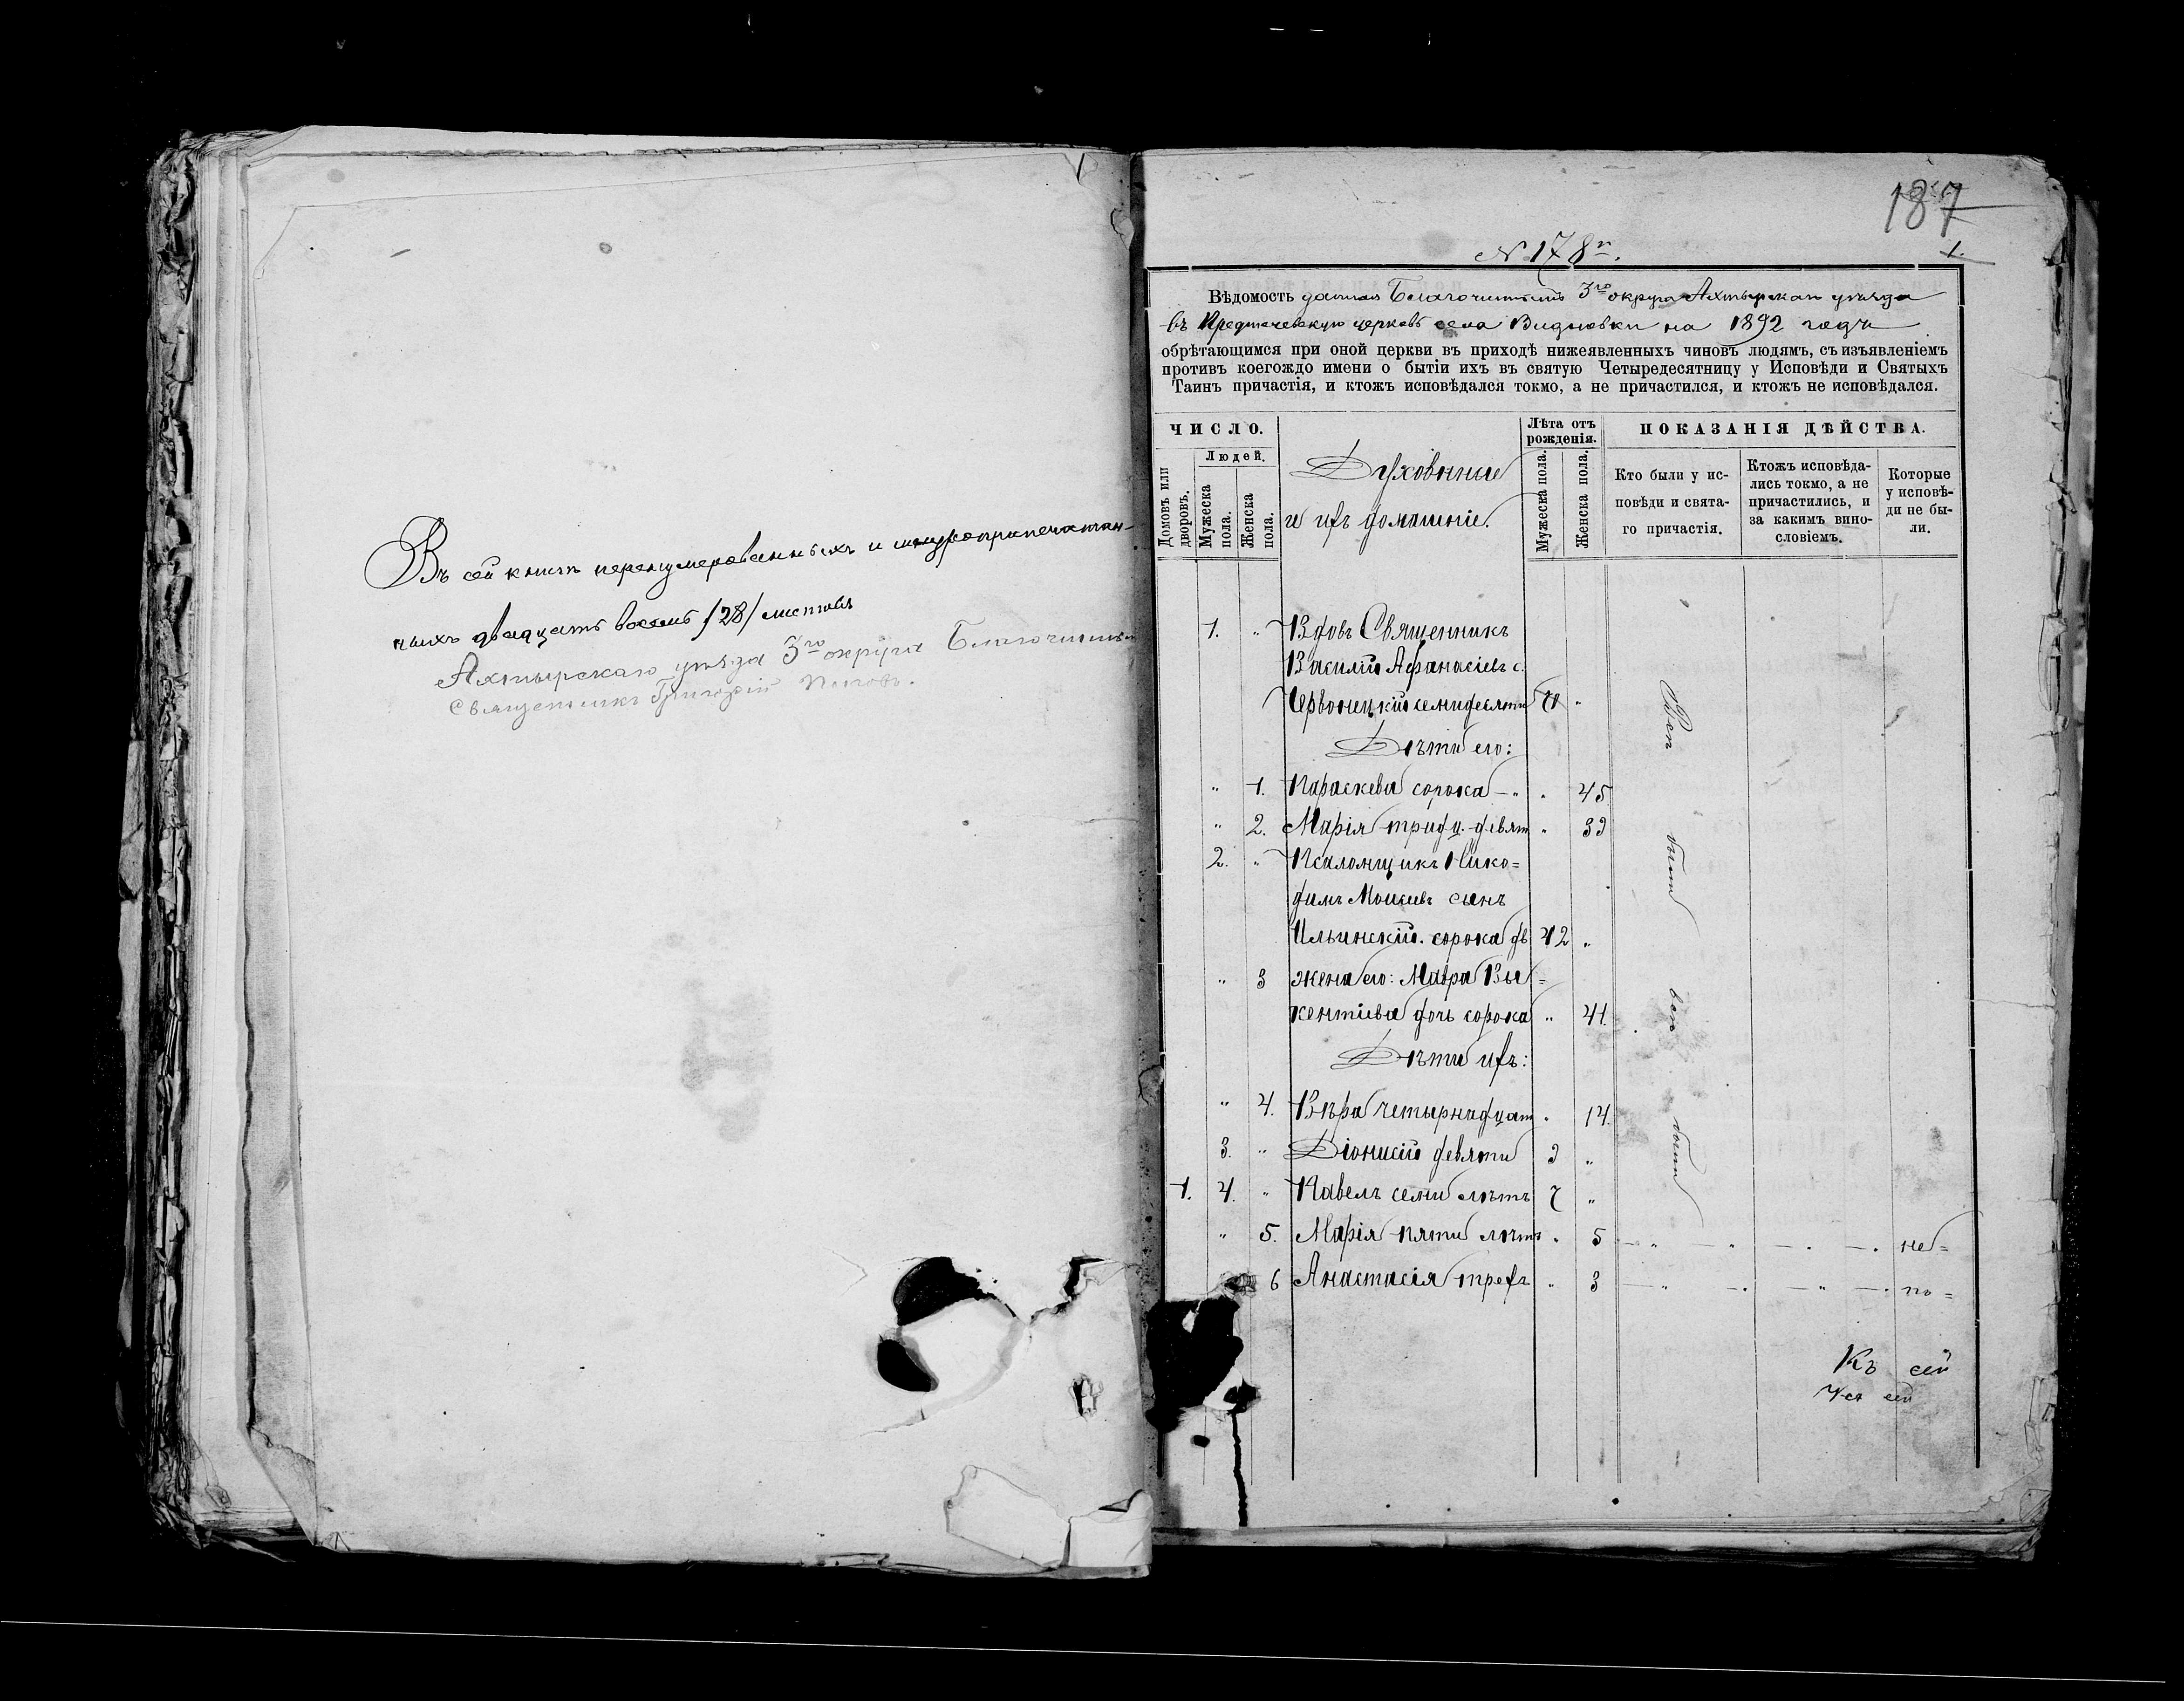 Въ сей книгѣ перенумерованныхъ и шнуроприпечатан-
ныхъ двадцать восемь /28/ листовъ
Ахтырскаго уѣзда 3го округа Благочинный
Священникъ Григорій Поповъ.
187
1.
№ 178й.
Вѣдомость данная Благочиннымъ 3го округа Ахтырскаго уѣзда
въ Предтечевскую церковь села Видновки на 1892 годъ
обрѣтающимся при оной церкви въ приходѣ нижеявленныхъ чиновъ людямъ, съ изъявленіемъ
противъ коегождо имени о бытіи ихъ въ святую Четыредесятницу у Исповѣди и Святыхъ
Таинъ причастія, и ктожъ исповѣдался токмо, а не причастился, и ктожъ не исповѣдался.
ЧИСЛО.
Людей.
Домовъ или дворовъ.
Мужеска пола.
Женска пола.
Духовные
и ихъ домашніе.
Лѣта отъ рожденія.
Мужеска пола.
Женска пола.
ПОКАЗАНІЯ ДѢЙСТВА.
Кто были у ис-
повѣди и свята-
го причастія.
Ктожъ исповѣда-
лись токмо, а не
причастились, и
за какимъ вино-
словіемъ.
Которые
у исповѣ-
ди не бы-
ли.
1. " Вдовъ Священникъ
Василій Аѳанасіевъ с.
Червонецкій семидесяти "
Дѣти его:
" 1. Параскева сорока — " " 45
" 2. Марія тридц. девят " 39
2. " Псаломщикъ Нико=
димъ Моисеевъ сынъ
Ильинскій. сорока дв 42 "
" 3 жена его: Мавра Ви=
кентіева дочь сорока " 41.
Дѣти ихъ:
" 4. Вѣра четырнадцат " 14.
3. " Діонисій девяти 9 "
1. 4. " Павелъ семи лѣтъ 7 "
" 5. Марія пяти лѣтъ " 5 — " — " — . — . не=
6 Анастасія трехъ " 3 — " — . — " — .
Всѣ были
всѣ были
Къ сей